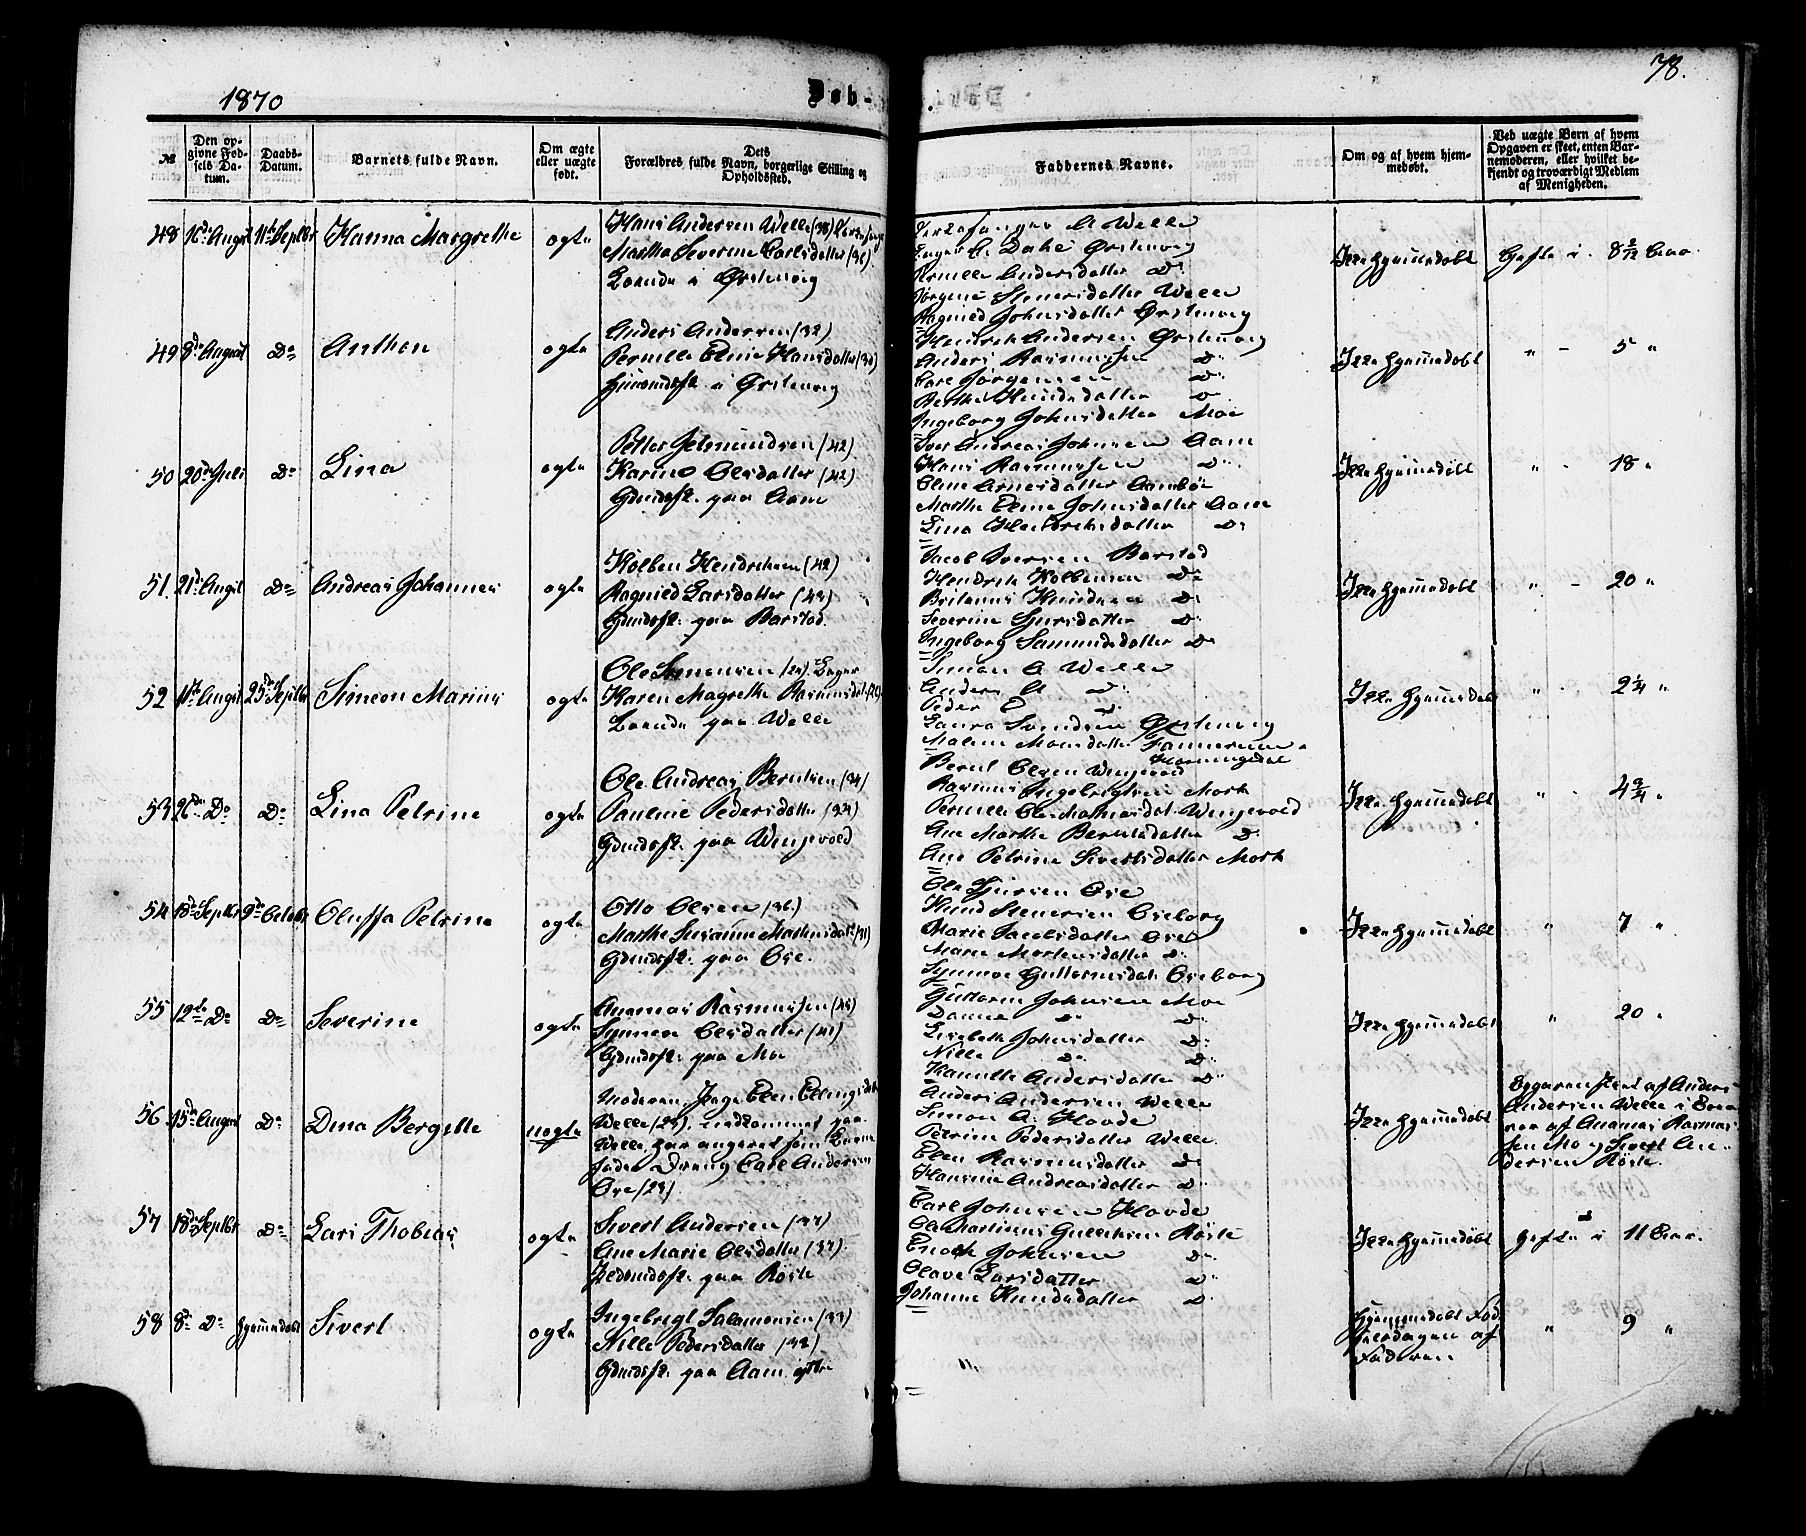 1870
Døb-
78.
№
Den op-
givne Fød-
sels Da-
tum.
Daabs-
Datum.
Barnets fulde Navn.
Om ægte
eller uægte
født.
Dets
Forældres fulde Navn, borgerlige Stilling og
Opholdssted.
Faddernes Navne.
Om og af hvem hjem-
medøbt.
Ved uægte Børn af hvem
Opgaven er skeet, enten Bar-
nemoderen, eller hvilket be-
kjendt og troværdigt Medlem
af Menigheden.
48 16de Augst 11te Septbr Hanna Margrethe ægte
Hans Andersen Welle (38)
Martha Severine Carlsdatter (36)
i Ørstenvig
A Welle
Dahl Ørstenvig
Pernille Andersdatter Do
Jørgine Stenersdatter Welle
Ragnild Johnsdatter Ørstenvig
Ikke hjemmedøbt
Gifte i 8 5/12 Aar
49 8de August Do Anthon ægte
Anders Andersen (32)
Pernille Eline Hansdatter (30)
Huusmdsf. i Ørstenvig
Hendrik Andersen Ørstenvig
Anders Rasmussen Do
Carl Jørgensen Do
Berthe Knudsdatter Do
Ingeborg Johnsdatter Moe
Ikke hjemmedøbt
" - 5 "
50 20de Juli Do Lina ægte
Petter Jetmundsen (42)
Karine Olsdatter (42)
Gdmdsf. paa Aam
Iver Andreas Johnsen Aam
Hans Rasmussen Do
Oline Arnesdatter Aambøe
Marthe Eline Johnsdatter Aam
Lina Hendriksdatter Do
Ikke hjemmedøbt
" - 18 "
51. 21de Augst Do Andreas Johannes ægte
Kolben Hendriksen (42)
Ragnild Larsdatter (43)
Gdmdsf. paa Barstad.
Jacob Iversen Barstad
Hendrik Kolbensen Do
Britanus Knudsen Do
Severine Sjursdatter Do
Ingeborg Samundsdatter Do
Ikke hjemmedøbt
" - 20 "
52 11te Augst 25de Septbr Simeon Marius ægte
Ole Simonsen (24)
Karen Magrethe Rasmusdatr
Boende paa Welle
Simon A Welle
Anders A Do
Peder E Do
Laura Svendsen Ørstenvig
Malene Monsdatter
Ikke hjemmedøbt
" - 2 1/4 "
53 26de Do Do Lina Petrine ægte
Ole Andreas Berntsen (34)
Pauline Pedersdatter (24)
Gdmdsf. paa Wingevold
Bernt Olsen Wingevold
Rasmus Ingebrigtsen Mork
Pernille Mathiasdat. Wingevold
Ane Marthe Berntsdatter Do
Ane Petrine Sivertsdatter Mork
Ikke hjemmedøbt
" - 4 3/4 "
54 18de Septbr 9de Octobr Oluffa Petrine ægte
Otto Olsen (36)
Marthe Susanne Mathiasdatr (31)
Gdmdsf. paa Ose.
Ole Sjursen Ose
Knud Stenersen Oseborg
Marie Jacobsdatter Ose
Maren Mortensdatter Do
Synnøve Guttormsdat. Oseborg
Ikke hjemmedøbt
" 7 "
55 12te Do Do Severine ægte
Ananias Rasmussen (45)
Synneve Olsdatter (41)
Gdmdsf. paa Moe
Guttorm Johnsen Moe
Do Do
Lisebeth Johnsdatter Do
Nille Do Do
Kanutte Andersdatter Do
Ikke hjemmedøbt
" 20 "
56 15de Augst Do Dina Bergitte uægte
Moderen, Pige Elen Ellingsdat.
Welle (29), indkommet paa
Welle, har angivet som Barne
fader Dreng Carl Andersen
Ose (23).
Anders Andersen Welle
Simon A. Hovde
Petrine Pedersdatter Welle
Elen Rasmusdatter Do
Hansine Andreasdatter Do
Ikke hjemmedøbt
Opgaven skeet af Anders
Andersen Welle
af Ananias Rasmus-
sen Mo og Sivert An-
dersen Røste.
57 18de Septbr Do Lars Thobias ægte
Sivert Andersen (37)
Ane Marie Olsdatter (37)
Gdmdsf. paa Røste
Carl Johnsen Hovde
Ole Martinus Gullichsen Røste
Enoch Johnsen Do
Olave Larsdatter Do
Johanne Knudsdatter Do
Ikke hjemmedøbt
Gifte i 11 Aar.
58 8de Do hjemmedøbt Sivert ægte
Ingebrigt Salomonsen (33)
Nille Pedersdatter (32)
Gdmdsf. paa Aam
Hjemmedøbt Fød-
selsdagen af
Faderen
" 9 "